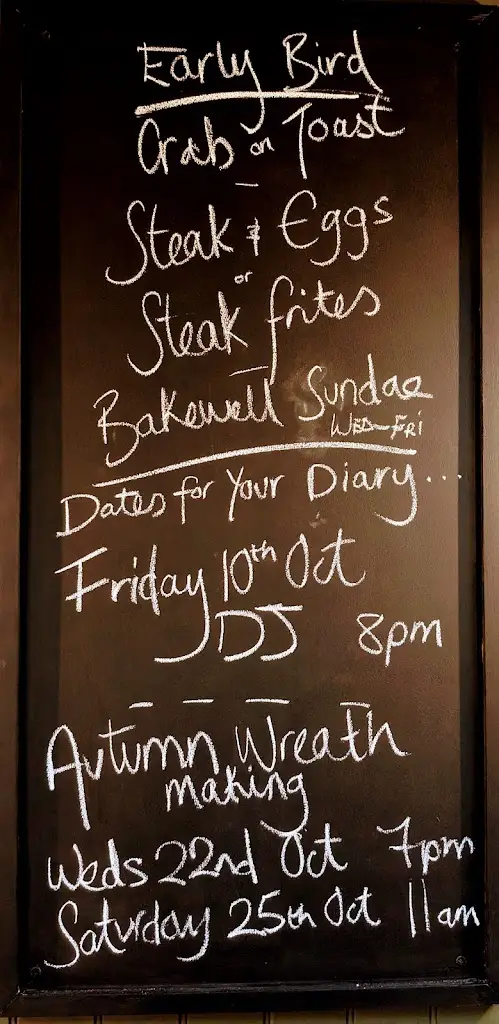 Early Bird
Crab on Toast
—
Steak & Eggs
or
Steak frites
—
Bakewell Sundae
WED-FRI
Dates for Your Diary...
Friday 10th Oct
JDJ 8pm
— — — —
Autumn Wreath
making
Weds 22nd Oct 7pm
Saturday 25th Oct 11am